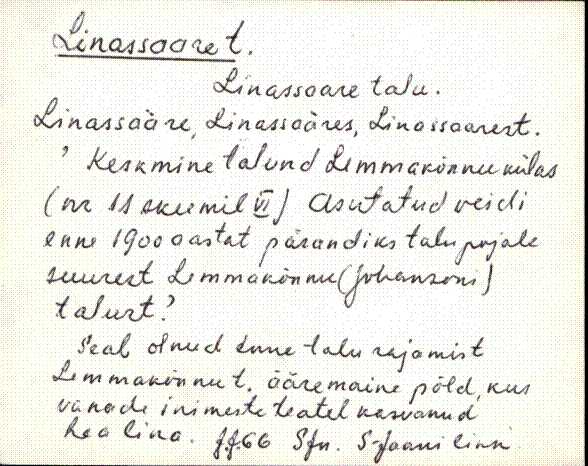 Linassaare t.
Linassaare talu.
Linassääre, Linassääres, Linassaarest.
? Keskmine talund Lemmakõnnu külas
(nr 11 skeemil VI) Asutatud veidi
enne 1900 aastat pärandiks talu pojale
suurest Lemmakõnnu (Johansoni)
talust?
Seal olnud enne talu rajamist
Lemmakõnnu t. ääremaine põld, kus
vanade inimeste teatel kasvanud
hea lina. 66 Sjn.